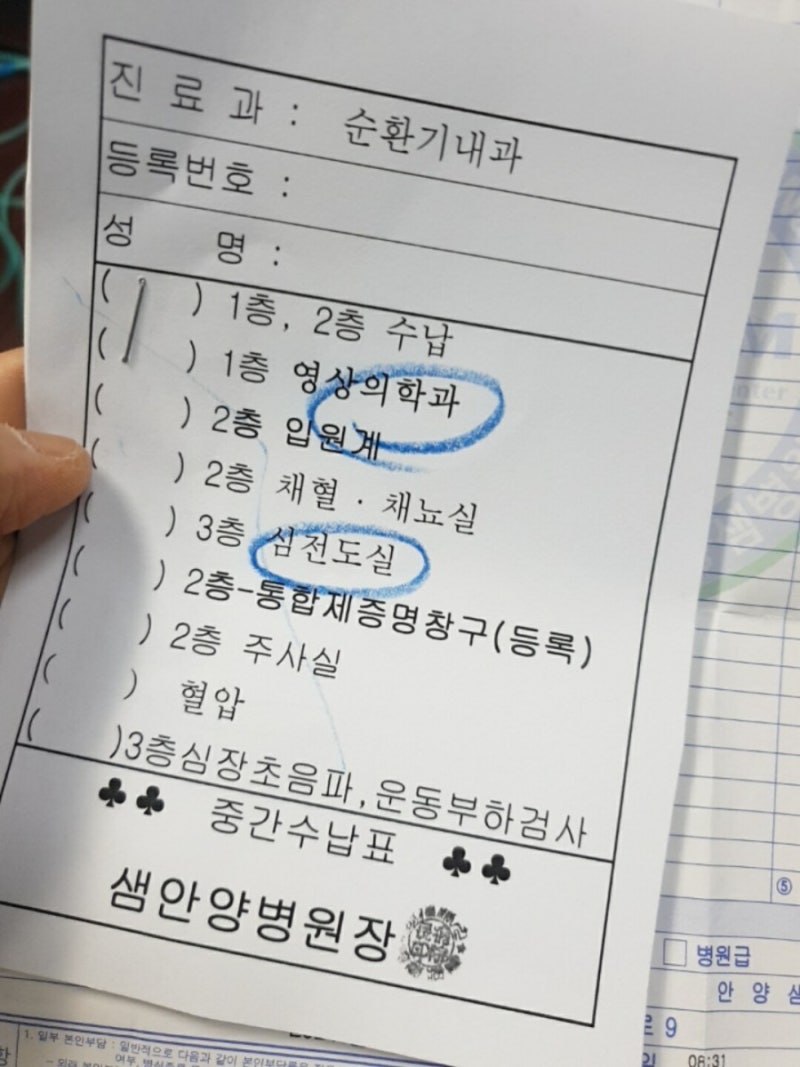 진 료 과 : 순환기내과
등록번호 :
성 명 :
( ) 1층, 2층 수납
( ) 1층 영상의학과
( ) 2층 입원계
( ) 2층 채혈 · 채뇨실
( ) 3층 심전도실
( ) 2층-통합제증명창구(등록)
( ) 2층 주사실
( ) 혈압
( )3층심장초음파,운동부하검사
♣♣ 중간수납표 ♣♣
샘안양병원장
⑤
병원급
안 양 샘
08:31
1. 일부 본인부담 : 일반적으로 다음과 같이 본인부담률을